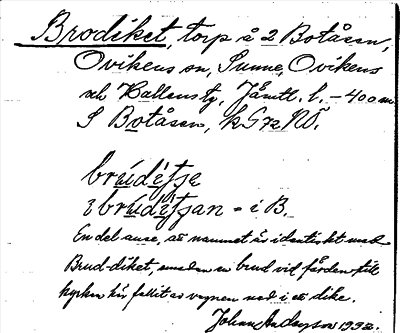 Brodiket, torp å 2 Botåsen,
Ovikens sn, Sunne, Ovikens
och Hallens tg, Jämtl. l. – 400 m
S Botåsen, NÖ.
brúdítje
i brúdítjan = i B.
En del anse, att namnet är identiskt med
Brud-diket, emedan en brud vid färden till
kyrkan här fallit av vagnen ned i ett dike.
Johan Anderson 1932.